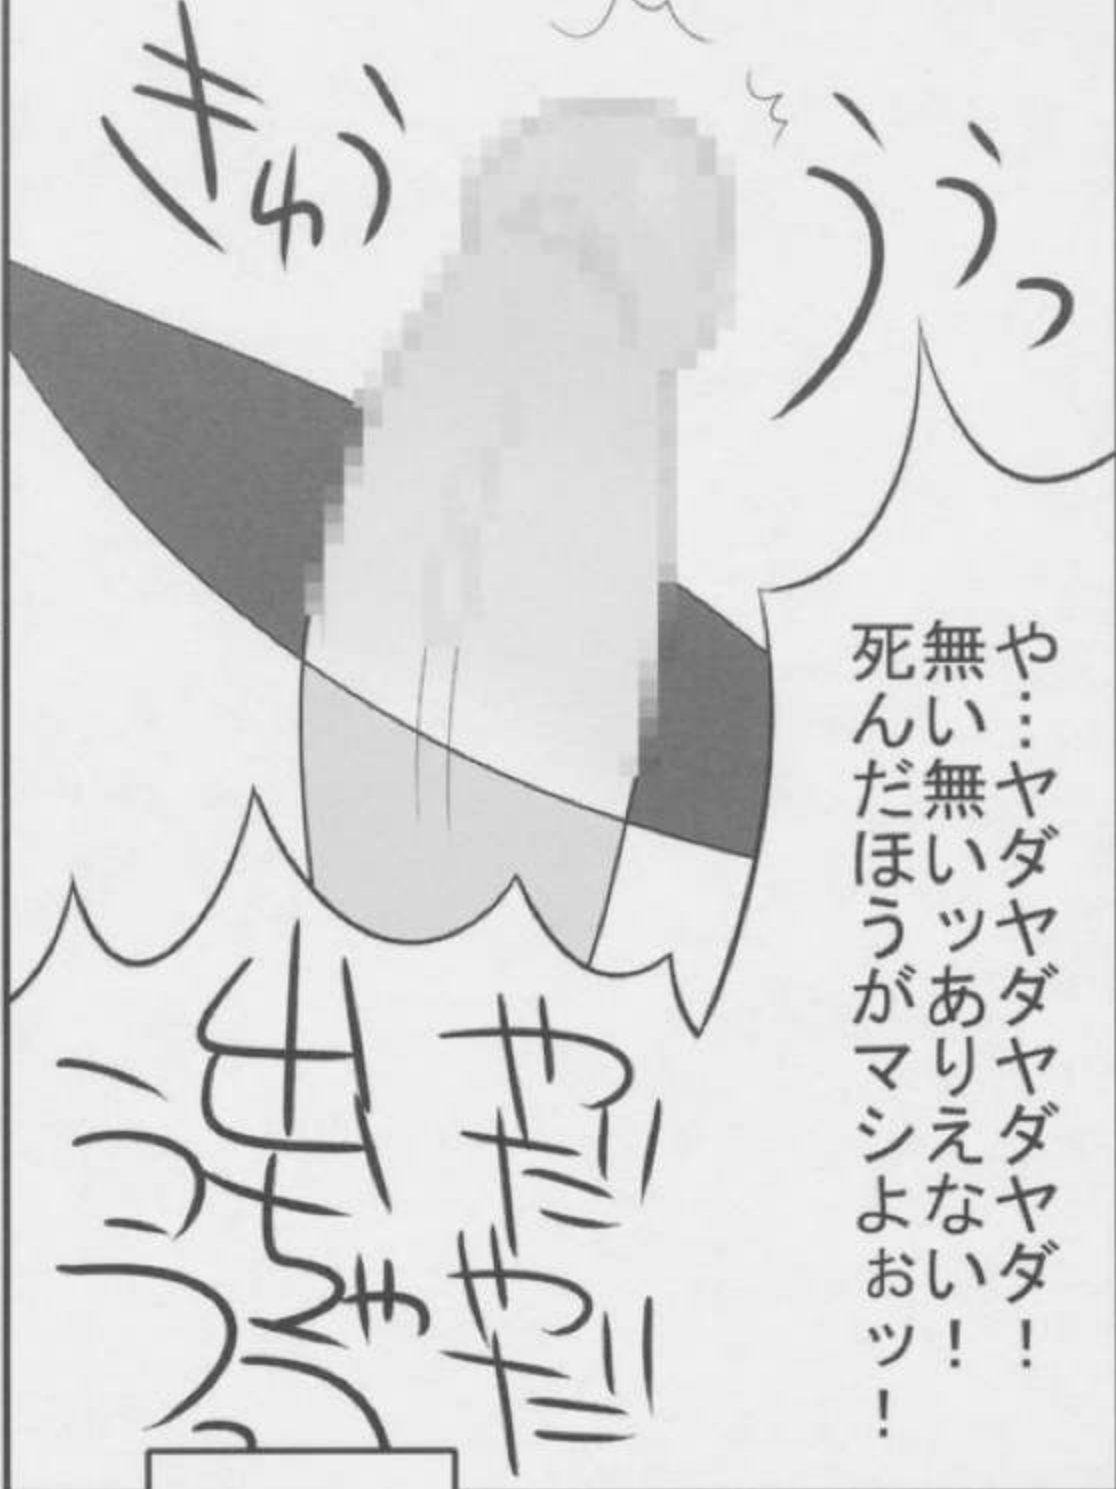 きゅううぅっ
や…ヤダヤダヤダヤダ！
無い無いッありえない！
死んだほうがマシよぉッ！
やだやだ
出ちゃう
ううっ